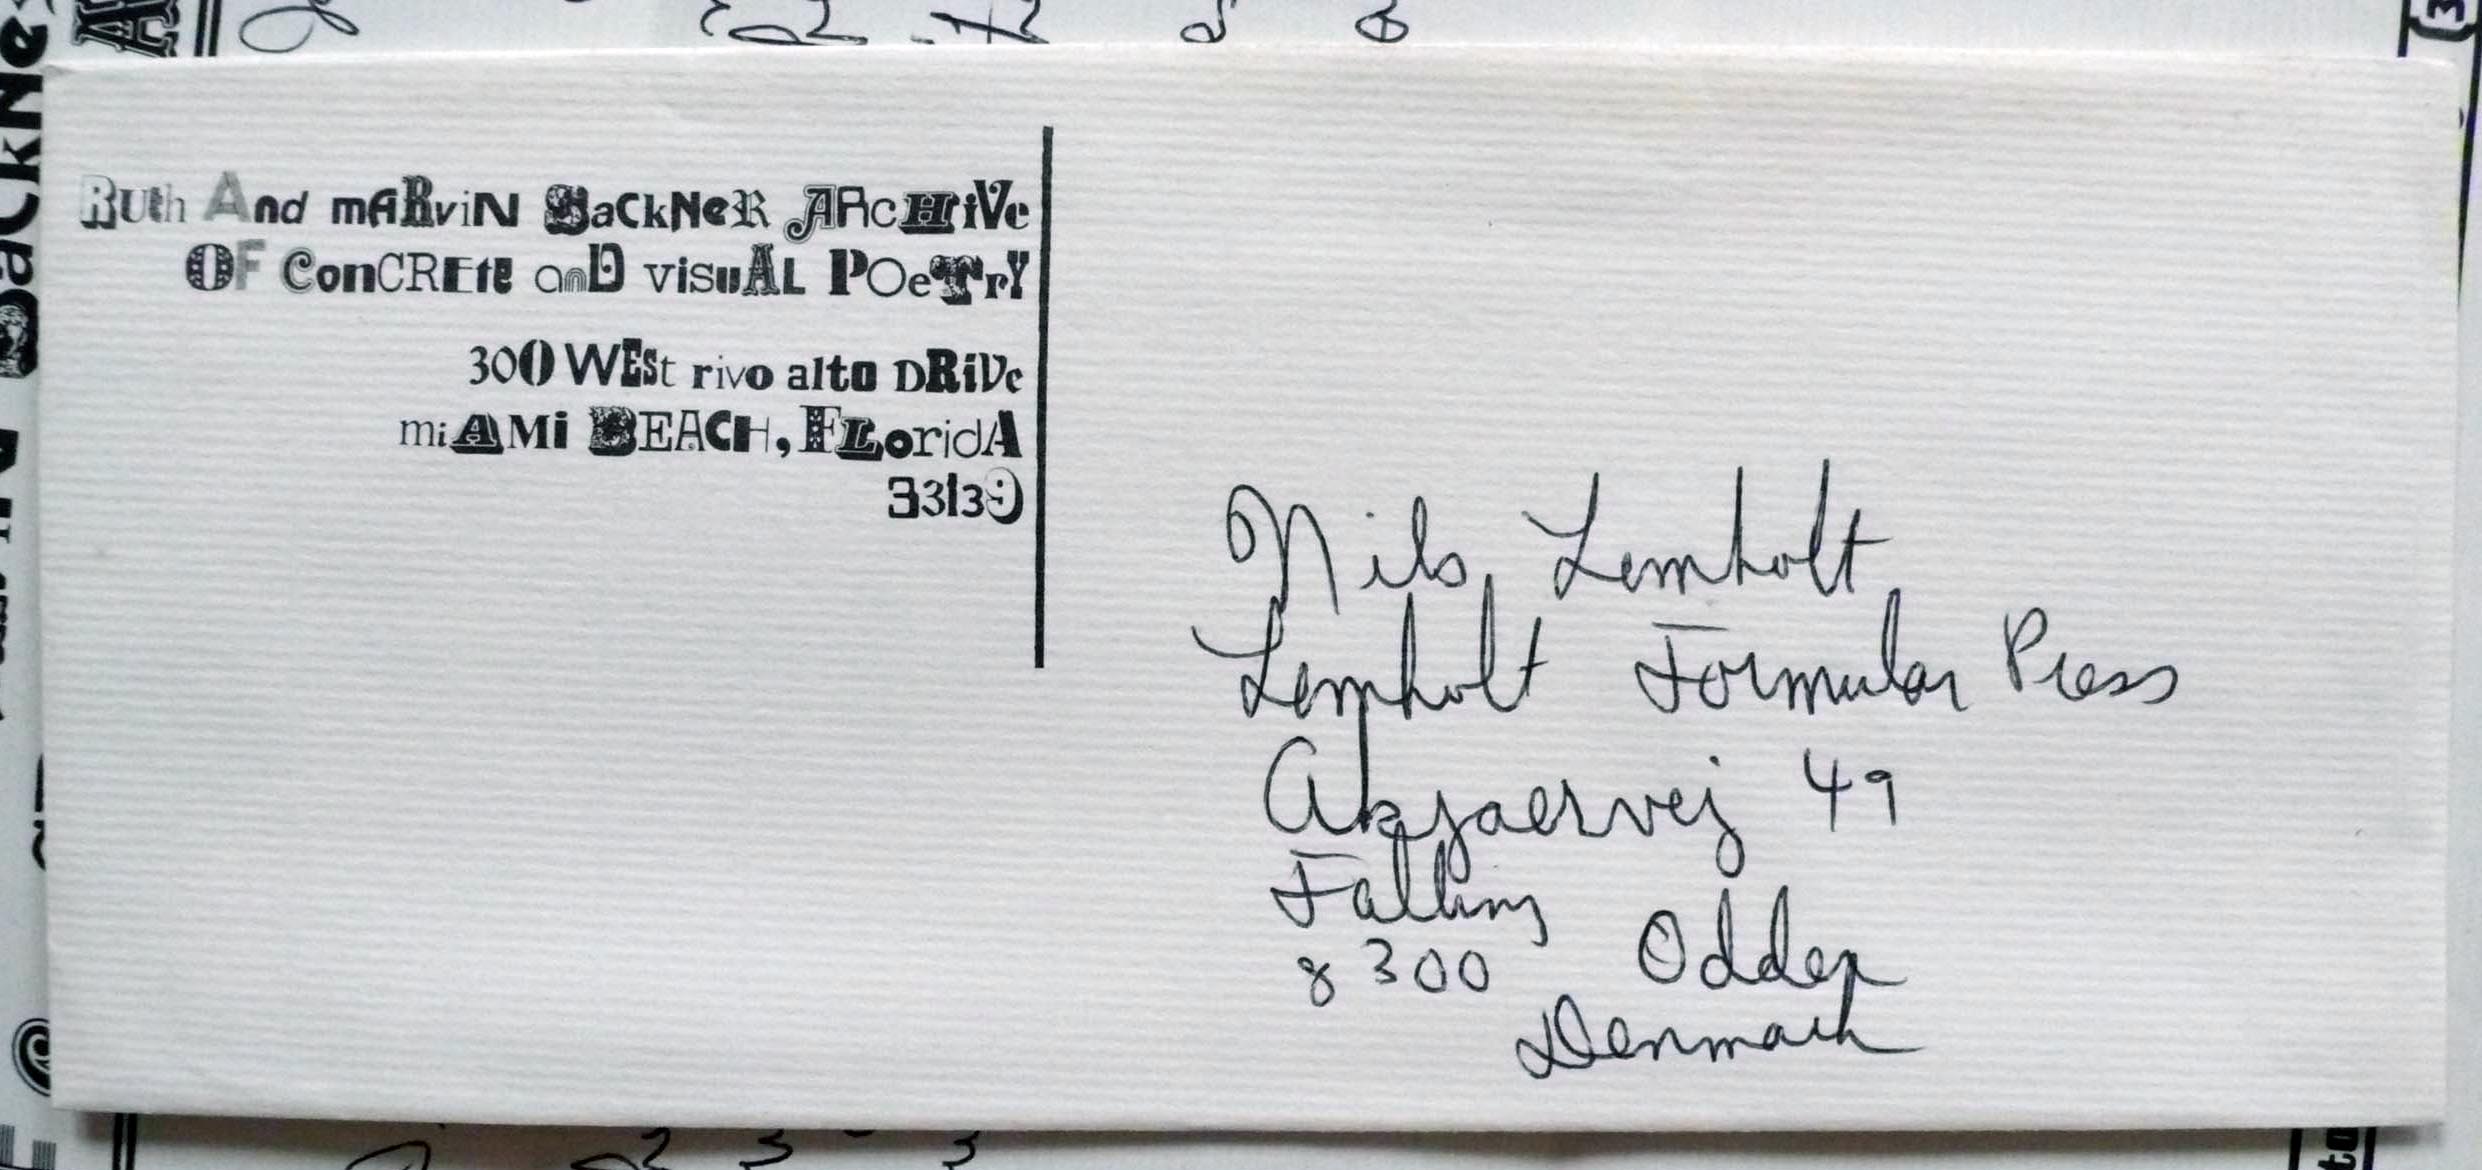 Ruth And mARviN SaCkNeR ARcHiVe
OF ConCREtE anD visuAL POeTrY
300 WESt rivo alto DRiVe
miAMi BEACH, FLoridA
33139
Nils Lomholt
Lomholt Formular Press
Akjaervej 49
Falling
8300 Odder
Denmark